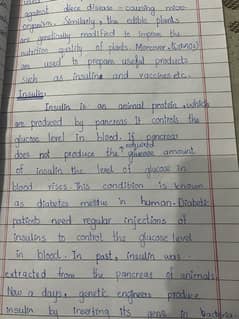 against diece disease - causing micro-
organism. Similarly, the edible plants
are genetically modified to improve the
nutrition quality of plants. Moreover,
are used to prepare useful products
such as insuline and vaccines etc.
Insulin:
Insulin is an animal protein, which
are produced by pancreas. It controls the
glucose level in blood. If pancreas
does not produce the required glucose amount
of insulin the level of glucose in
blood rises. This condition is known
as diabetes mellitus in human. Diabetic
patients need regular injections of
insulins to control the glucose level
in blood. In past, insulin was
extracted from the pancreas of animals.
Now a days, genetic engineers produce
insulin by inserting its gene in bacteria